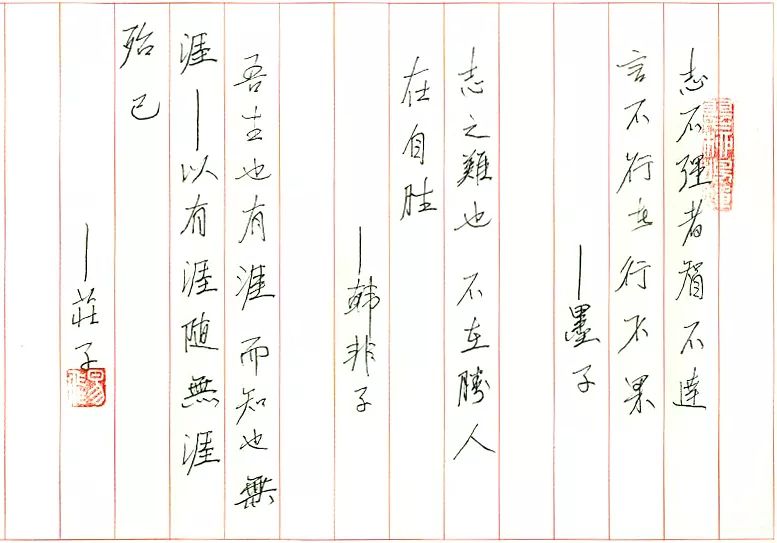 志不强者智不達
言不行者行不果
—墨子
志之難也 不在勝人
在自胜
—韩非子
吾生也有涯 而知也無
涯—以有涯随無涯
殆已
—莊子